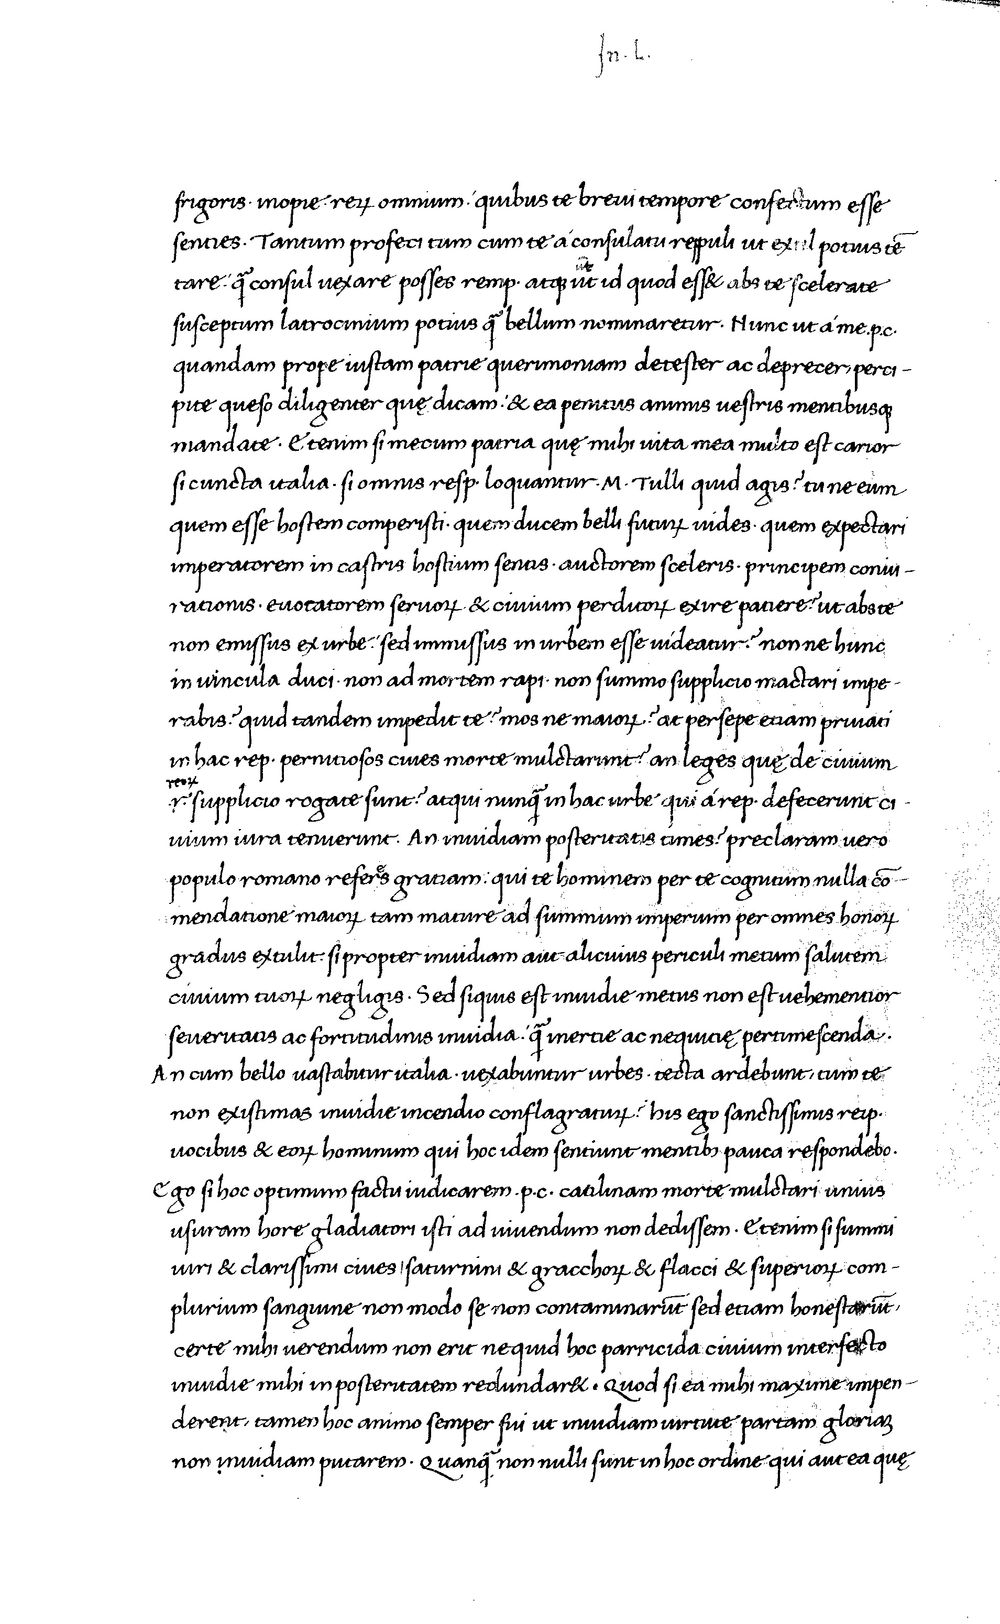 In. L.
frigoris. inopie. reꝝ omnium. quibus te breui tempore confectum esse
senties. Tantum profeci tum cum te á consulatu reppuli ut exul potius tē
tare. q̄ consul uexare posses remp. atqꝫ ut id quod ess& abs te scelerate
susceptum latrocinium potius q̄ bellum nominaretur. Nunc ut á me .p.c.
quandam prope iustam patrie querimoniam detester ac deprecer, perci-
pite queso diligenter quę dicam. & ea penitus animis uestris mentibusqꝫ
mandate. Etenim si mecum patria quę mihi uita mea multo est carior
si cuncta italia. si omnis resp. loquantur. M. Tulli quid agis? tu ne eum
quem esse hostem comperisti. quem ducem belli futuꝝ uides. quem expectari
imperatorem in castris hostium sentis. auctorem sceleris. principem coniu-
rationis. euocatorem seruoꝝ & ciuium perditoꝝ exire patiere? ut abs te
non emissus ex urbe. sed immissus in urbem esse uideatur? non ne hunc
in uincula duci. non ad mortem rapi. non summo supplicio mactari impe-
rabis? quid tandem impedit te? mos ne maioꝝ? at persepe etiam priuati
in hac rep. pernitiosos ciues morte mulctarunt? an leges quę de ciuium
reoꝝ
r. supplicio rogate sunt? atqui nunq̄ in hac urbe qui á rep. defecerunt ci-
uium iura tenuerunt. An inuidiam posteritatis times? preclaram uero
populo romano refers gratiam. qui te hominem per te cognitum nulla cō-
mendatione maioꝝ tam mature ad summum imperium per omnes honoꝝ
gradus extulit. si propter inuidiam aut alicuius periculi metum salutem
ciuium tuoꝝ negligis. Sed siquis est inuidie metus non est uehementior
seueritatis ac fortitudinis inuidia. q̄ inertie ac nequicię pertimescenda.
An cum bello uastabitur italia. uexabuntur urbes. tecta ardebunt, tum te
non existimas inuidie incendio conflagratuꝝ? his ego sanctissimis reip.
uocibus & eoꝝ hominum qui hoc idem sentiunt mentibꝫ pauca respondebo.
Ego si hoc optimum factu iudicarem .p.c. catilinam morte mulctari unius
usuram hore gladiatori isti ad uiuendum non dedissem. Etenim si summi
uiri & clarissimi ciues saturnini & gracchoꝝ & flacci & superioꝝ com-
plurium sanguine non modo se non contaminarūt sed etiam honestarūt,
certe mihi uerendum non erit nequid hoc parricida ciuium interfecto
inuidie mihi in posteritatem redundar&. Quod si ea mihi maxime impen-
derent, tamen hoc animo semper fui ut inuidiam uirtute partam gloriaꝫ
non inuidiam putarem. Quanq̄ non nulli sunt in hoc ordine qui aut ea quę